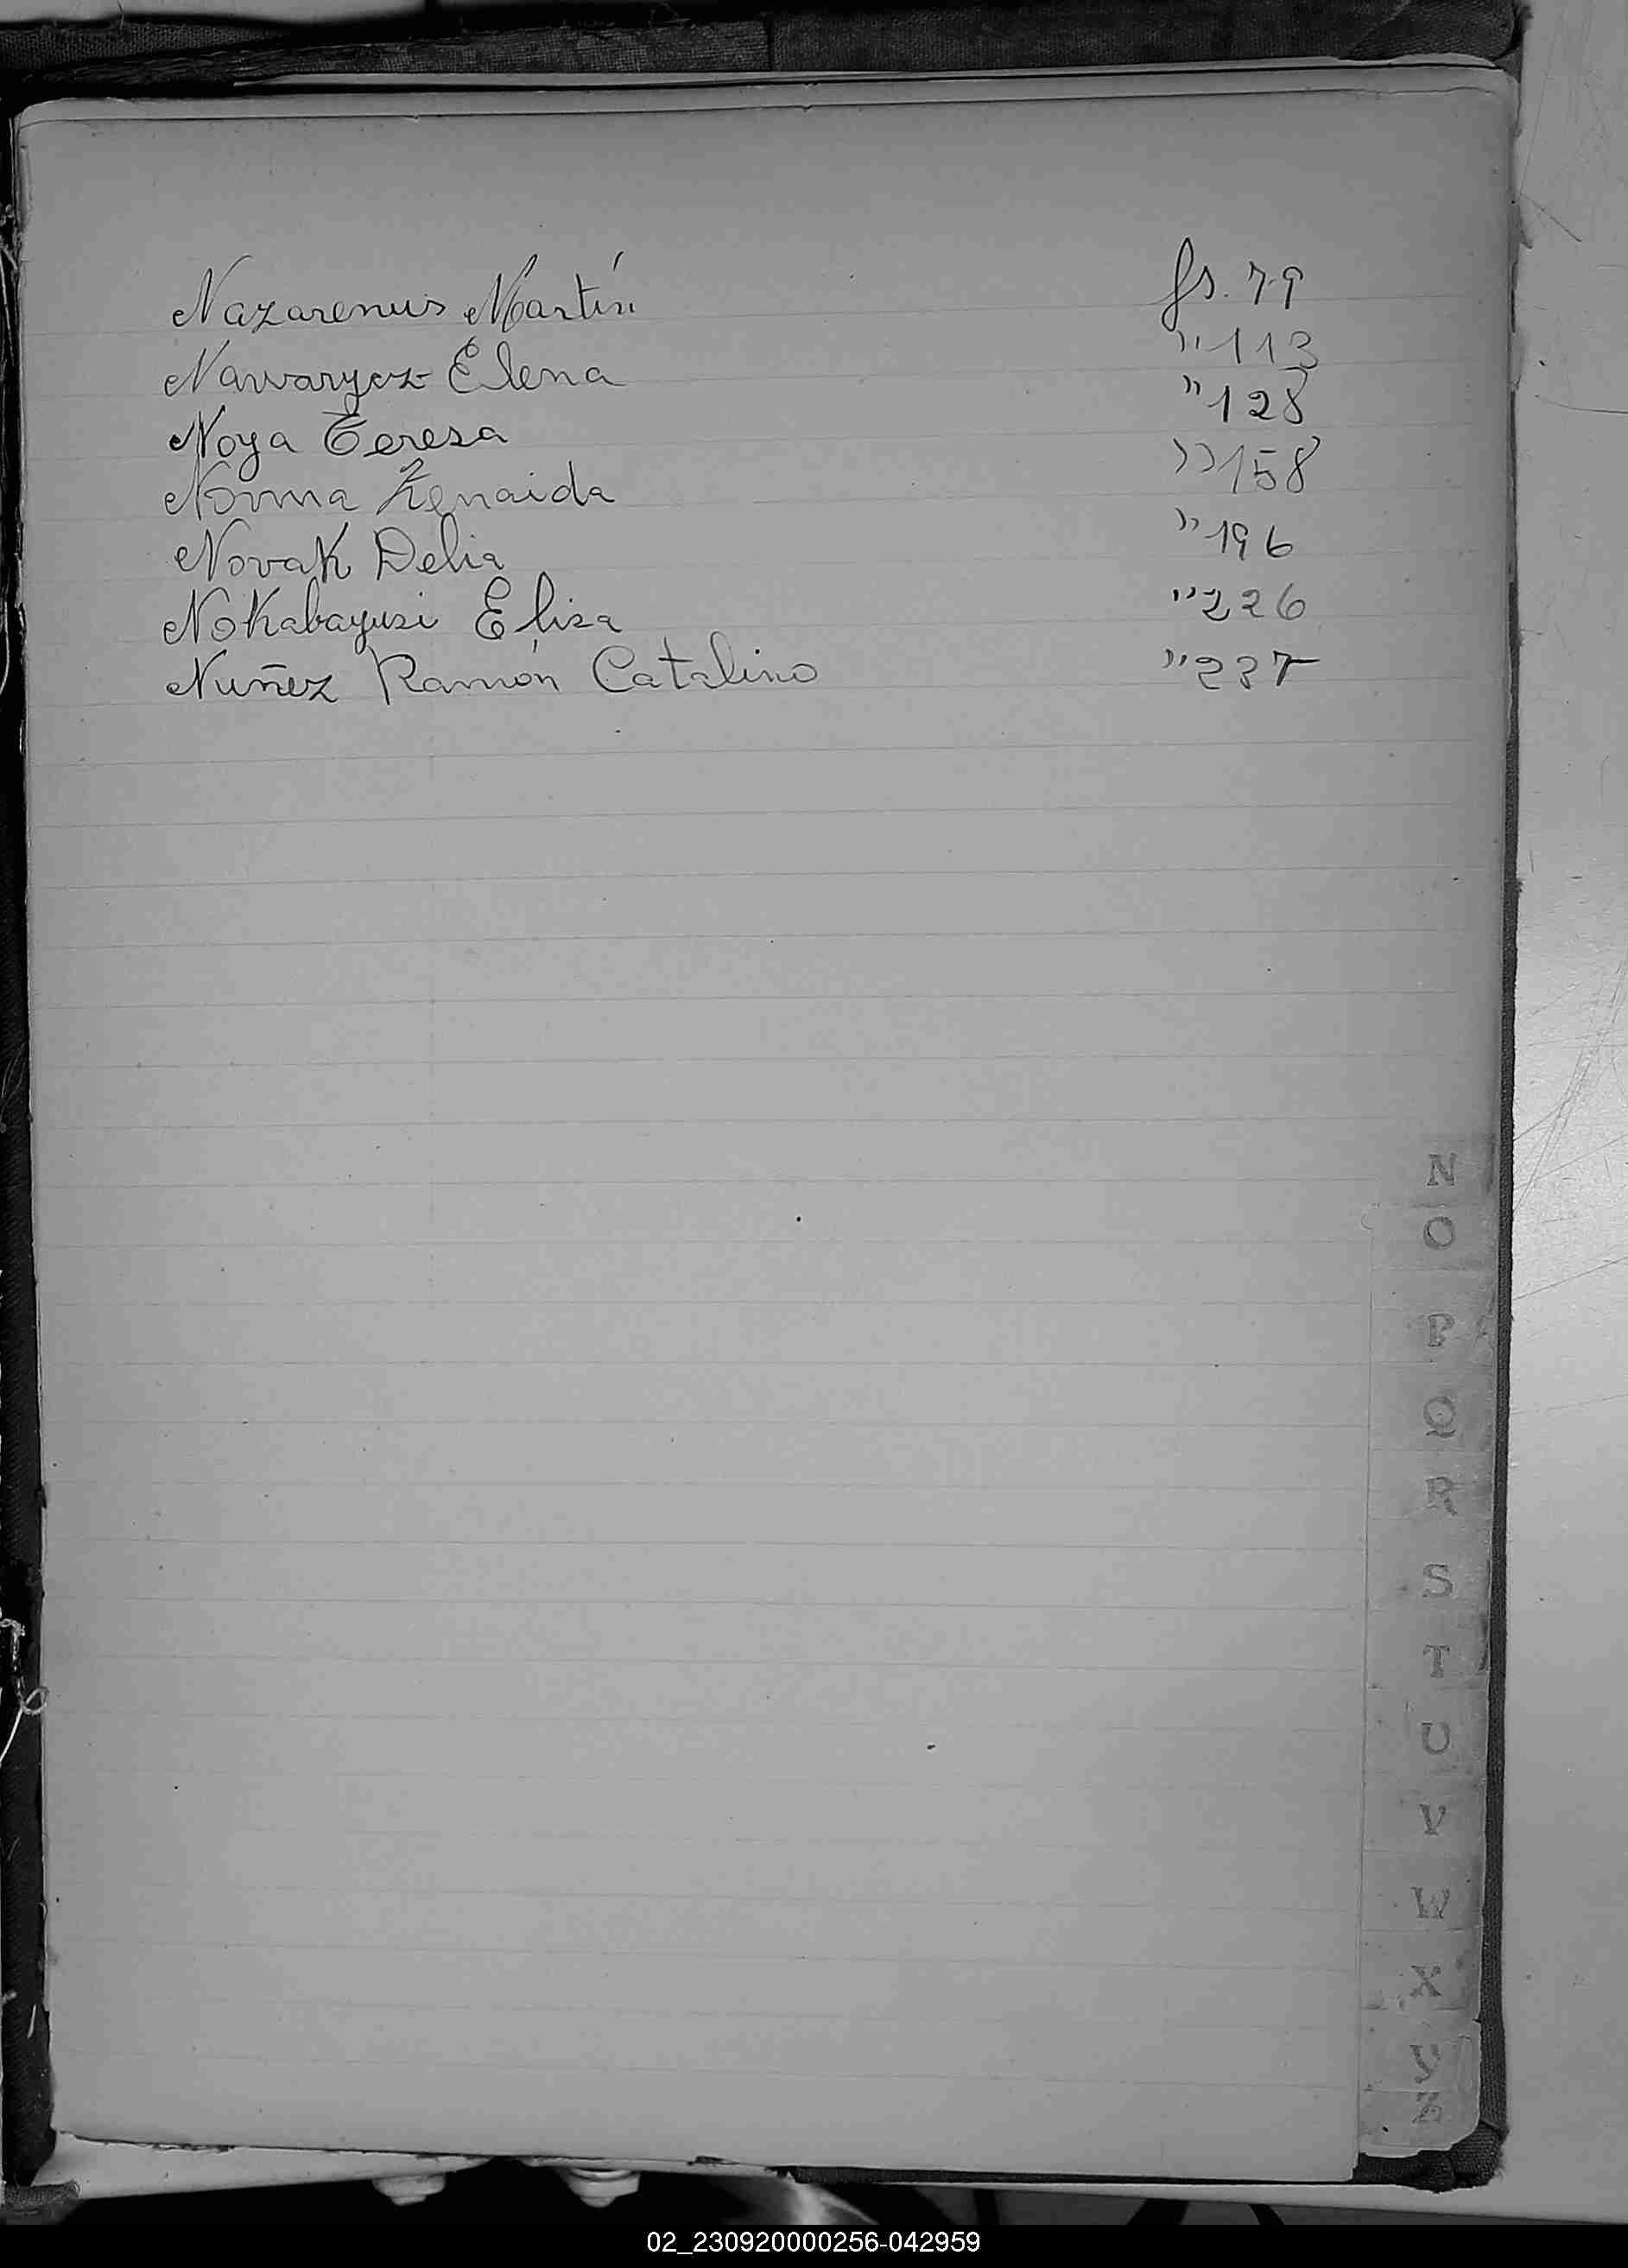 Nazarenus Martín fs. 79
Nawarycz Elena " 113
Noya Teresa " 128
Norma Zenaida " 158
Novak Delia " 196
Nokabayusi Elisa " 226
Nuñez Ramón Catalino " 237
N
O
P
Q
R
S
T
U
V
W
X
Y
Z
02_230920000256-042959